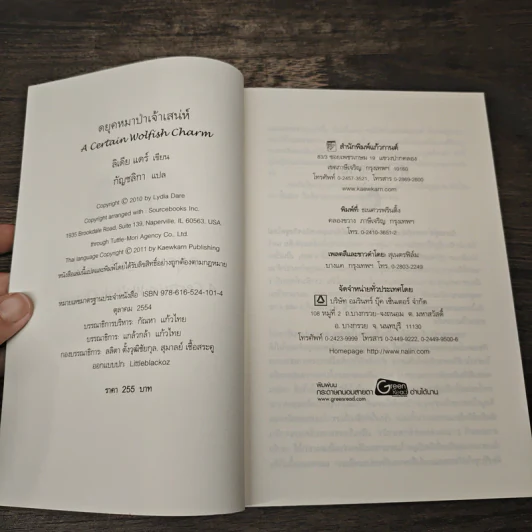 ดยุคหมาป่าเจ้าเสน่ห์
A Certain Wolfish Charm
ลิเดีย แดร์ เขียน
กัญชลิกา แปล
Copyright © 2010 by Lydia Dare
Copyright arranged with : Sourcebooks Inc.
1935 Brookdale Road, Suite 139, Naperville, IL 60563, USA.
through Tuttle-Mori Agency Co., Ltd.
Thai language Copyright © 2011 by Kaewkarn Publishing
หนังสือเล่มนี้แปลและพิมพ์โดยได้รับลิขสิทธิ์อย่างถูกต้องตามกฎหมาย
หมายเลขมาตรฐานประจำหนังสือ ISBN 978-616-524-101-4
ตุลาคม 2554
บรรณาธิการบริหาร กัณหา แก้วไทย
บรรณาธิการ แกล้วกล้า แก้วไทย
กองบรรณาธิการ ลลิตา ตั้งวุฒิชัยกุล, สุมาลย์ เชื้อสระคู
ออกแบบปก Littleblackoz
ราคา 255 บาท
สำนักพิมพ์แก้วกานต์
83/3 ซอยเพชรเกษม 19 แขวงปากคลอง
เขตภาษีเจริญ กรุงเทพฯ 10160
โทรศัพท์ 0-2457-3521, โทรสาร 0-2869-0600
www.kaewkarn.com
พิมพ์ที่
คลองขวาง ภาษีเจริญ กรุงเทพฯ
โทร. 0-2410-3651-2
เพลตสีและขาวดำโดย สุเนตรฟิล์ม
บางแค กรุงเทพฯ โทร. 0-2803-2248
จัดจำหน่ายทั่วประเทศโดย
บริษัท อมรินทร์ บุ๊ค เซ็นเตอร์ จำกัด
108 หมู่ที่ 2 ถ.บางกรวย-จงถนอม ต.มหาสวัสดิ์
อ.บางกรวย จ.นนทบุรี 11130
โทรศัพท์ 0-2423-9999, โทรสาร 0-2449-9222, 0-2449-9500-6
Homepage: http://www.naiin.com
พิมพ์บน
กระดาษถนอมสายตา Green Read อ่านได้นาน
www.greenread.com